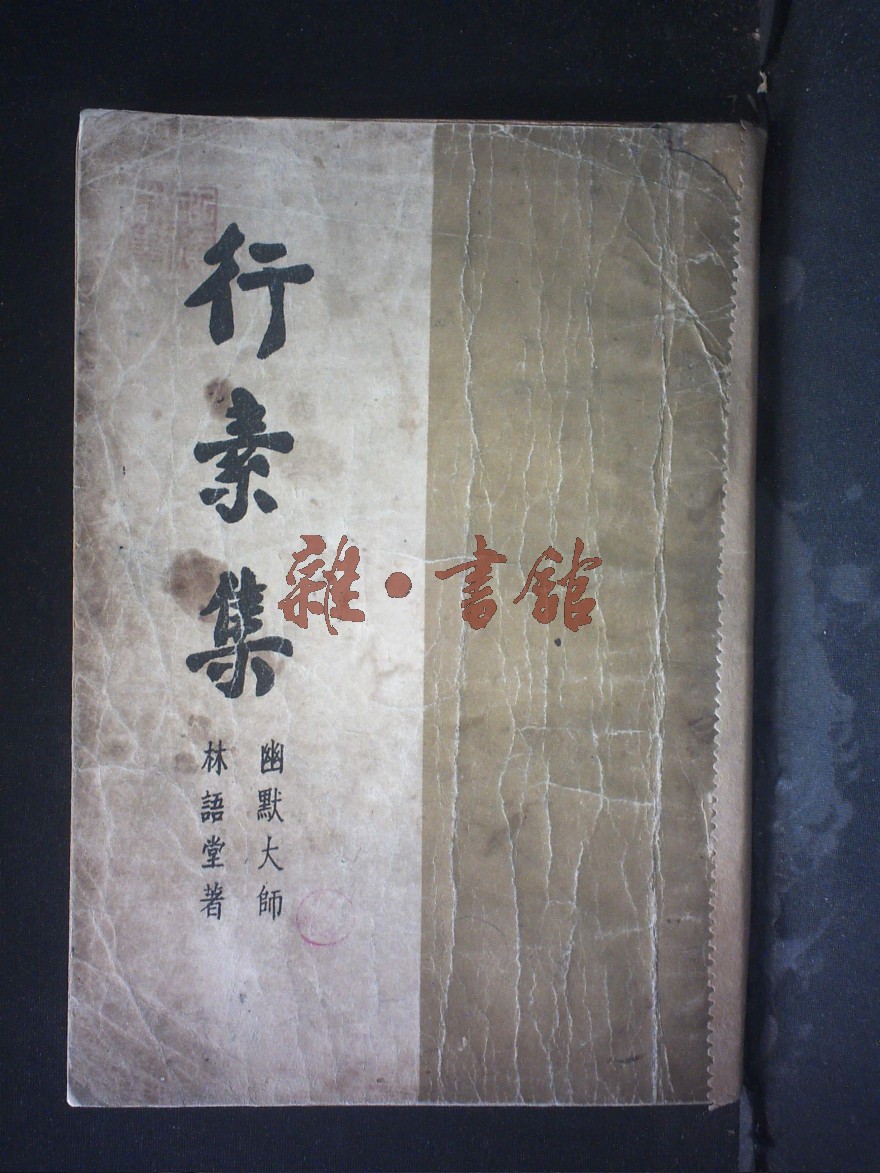 行素集
幽默大師
林語堂著
雜·書館